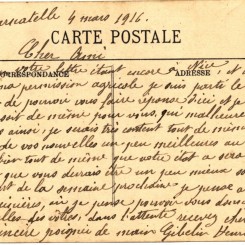 ercatelle 4 mars 1916.
CARTE POSTALE
Cher Ami
CORRESPONDANCE ADRESSE
votre lettre étant encore à Nice
ma permission agricole je suis parti le
de pouvoir vous faire réponse d'ici et je
soit de même pour vous, qui malheureu
ainsi je serais très content tout de même
de vos nouvelles un peu meilleures au
tout de même que votre état a sera
que vous devrais être un peu mieux so
de la semaine prochaine je pense a
je pense pouvoir vous donc
des vôtres. dans l'attente recevez cher
incère poignée de main Gibelin Henri